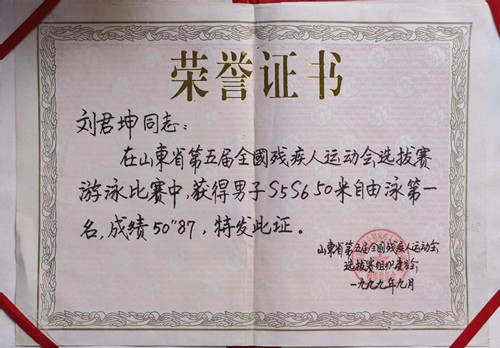 荣誉证书
刘君坤同志：
在山東省第五届全國残疾人运动会选拔赛
游泳比赛中，获得男子S5S6 50米自由泳第一
名，成绩50"87，特发此证。
山東省第五届全國残疾人运动会
选拔赛组织委员会
一九九九年九月